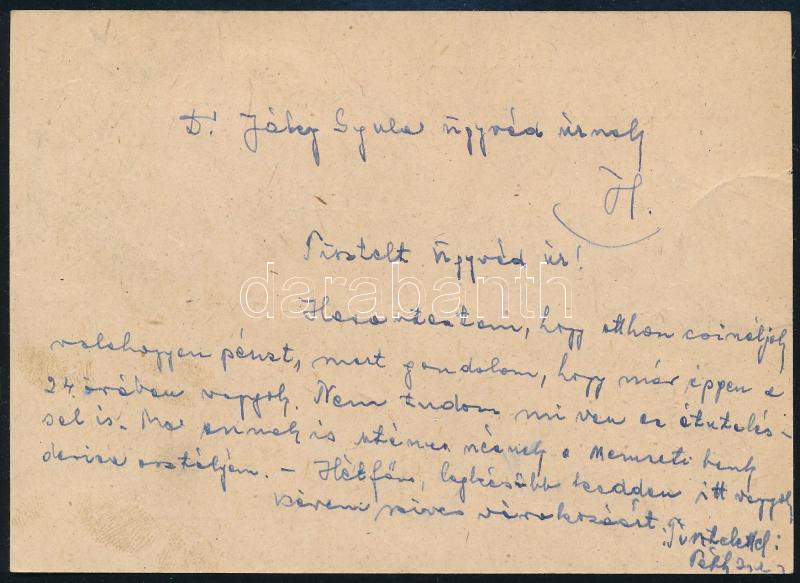 Dr Jáky Gyula ügyvéd úrnak
H.
Tisztelt ügyvéd úr!
darabanth
Haza utaztam, hogy otthon csináljak
valahogyan pénzt, mert gondolom, hogy már éppen a
24 órában vagyok. Nem tudom mi van az átutalás-
sal is. Ma annak is utána nézek a Nemzeti bank
deviza osztályán. - Hétfőn, legkésőbb kedden itt vagyok
kérem szíves várakozását.
Tisztelettel: